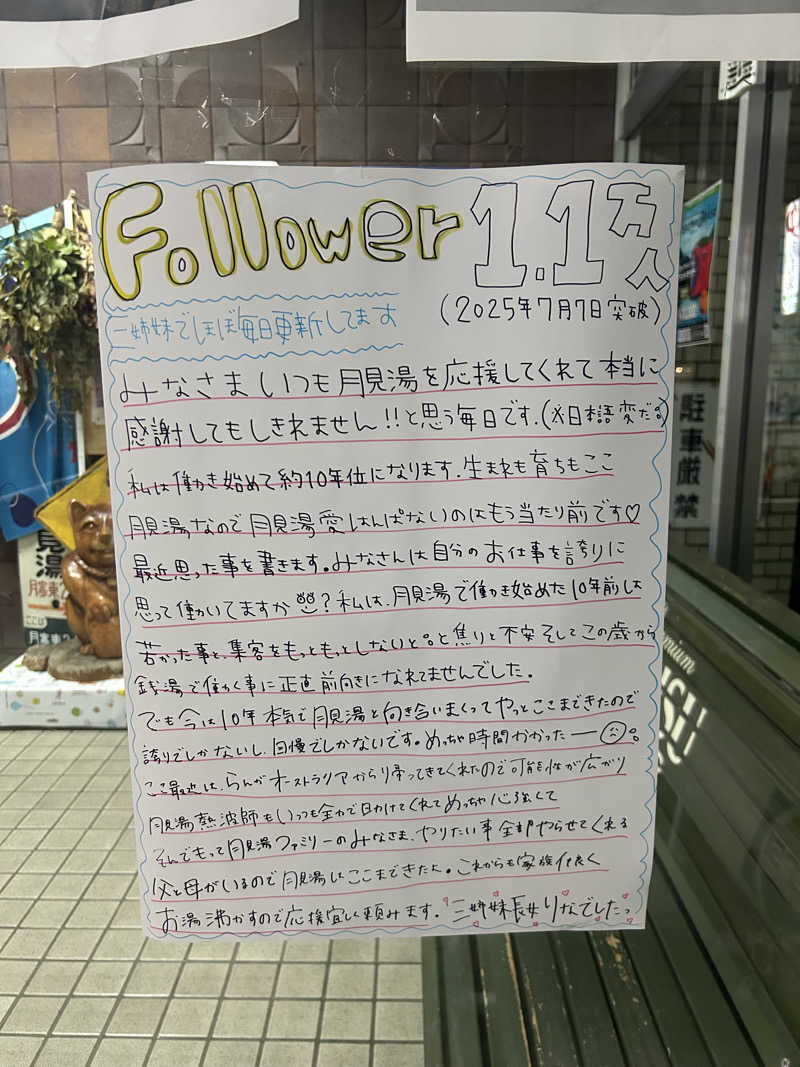 Follower 1.1万人
(2025年7月7日突破)
三姉妹でほぼ毎日更新してます
みなさまいつも月見湯を応援してくれて本当に
感謝してもしきれません!!と思う毎日です.(※日本語変だ。)
私は働き始めて約10年位になります.生まれも育ちもここ
月見湯なので月見湯愛はんぱないのはもう当たり前です♡
最近思った事を書きます。みなさんは自分のお仕事を誇りに
思って働いてますか?私は、月見湯で働き始めた10年前は
若かった事と、集客をもっともっとしないと。と焦りと不安そしてこの歳から
銭湯で働く事に正直前向きになれてませんでした.
でも今は10年本気で月見湯と向き合いまくってやっとここまできたので
誇りでしかないし、自慢でしかないです。めっちゃ時間かかったー
ここ最近は、らんがオーストラリアから帰ってきてくれたので可能性が広がり
月見湯熱波師もいつも全力で助けてくれてめっちゃ心強くて
そんでもって月見湯ファミリーのみなさま、やりたい事全部やらせてくれる
父と母がいるので月見湯はここまできたた。これからも家族仲良く
お湯沸かすので応援宜しく頼みます.三姉妹長女りなでしたっ
駐車厳禁
見湯